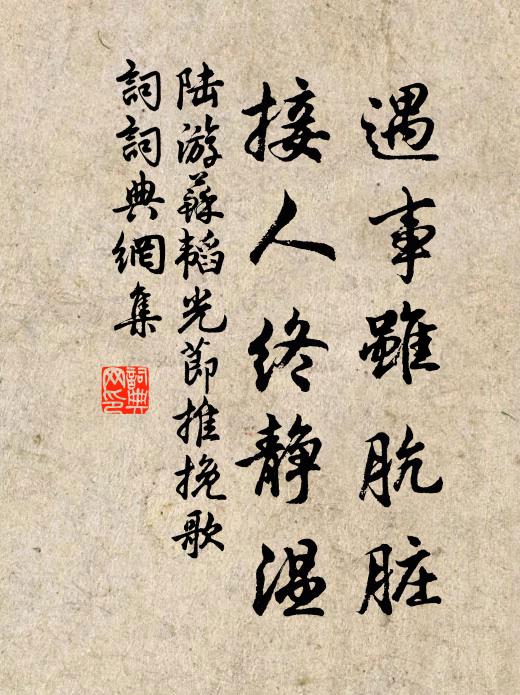 遇事雖肮脏
接人終静温
陆游蘇韬光節推挽歌
詞詞典網集
詞典網印